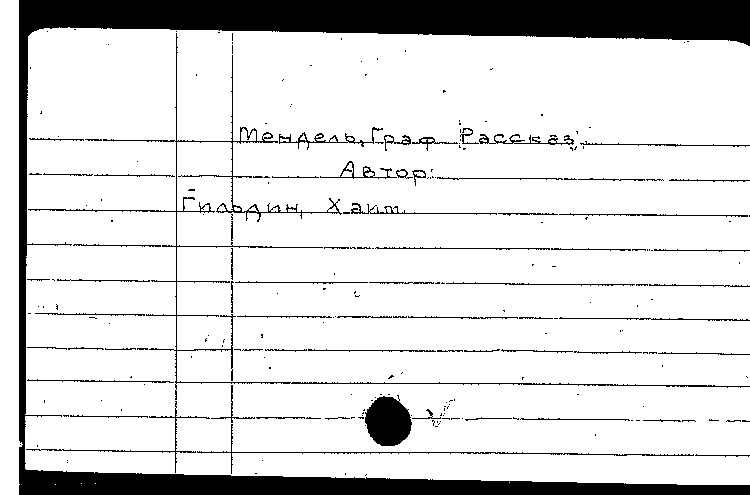 Мендель, Граф [Рассказ].
Автор:
Гильдин, Хаим.